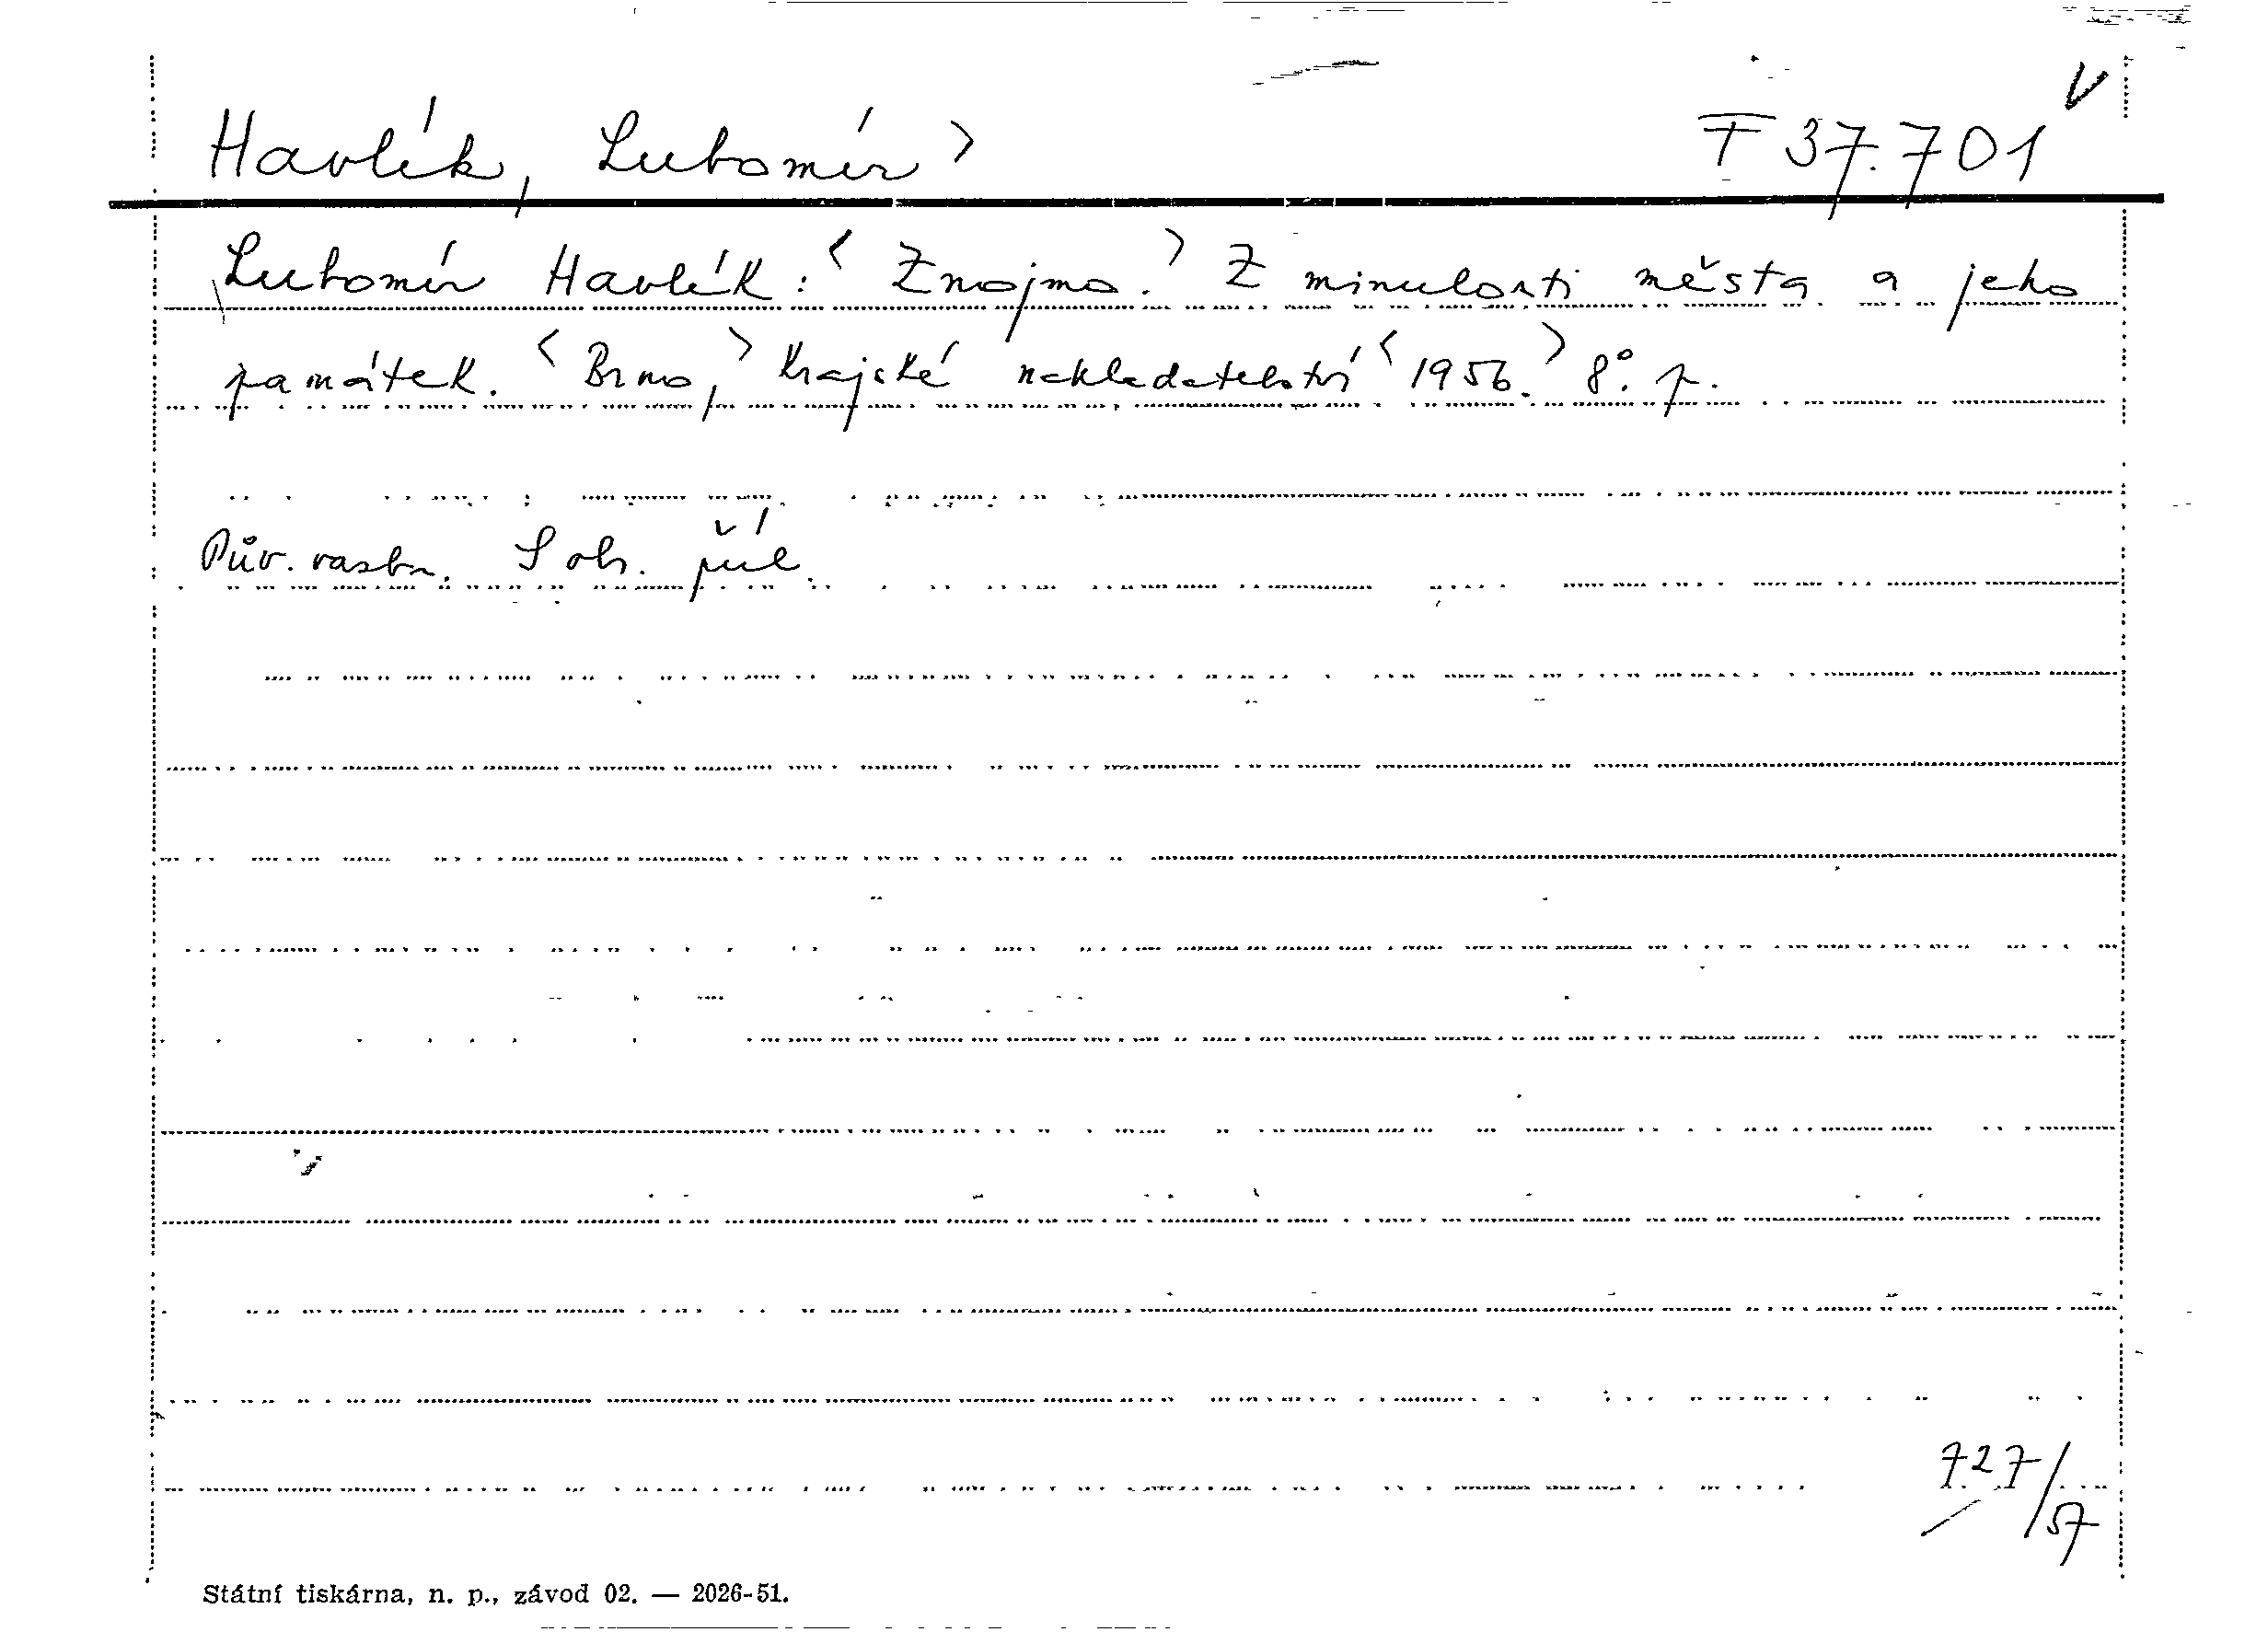 Havlík, Lubomír > F 37.701 V
Lubomír Havlík: < Znojmo. > Z minulosti města a jeho
památek. < Brno, > Krajské nakladatelství < 1956. > 8°. p.
Pův. vazba. S obr. příl.
727/57
Státní tiskárna, n. p., závod 02. — 2026-51.